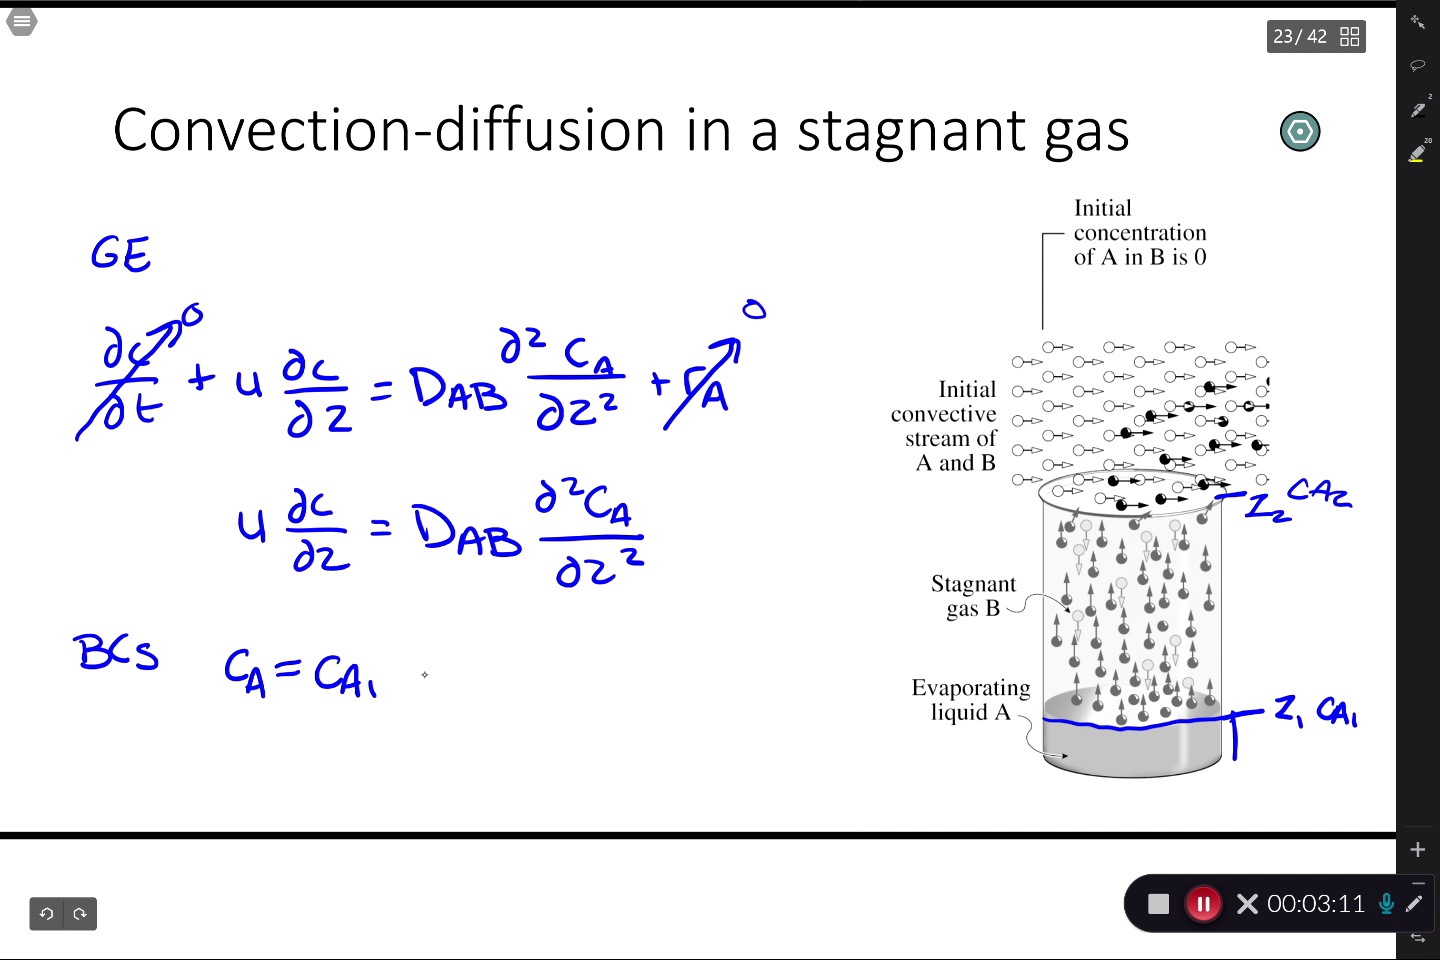 23 / 42
2
20
Convection-diffusion in a stagnant gas
GE
∂c/∂t → 0 + u ∂c/∂z = D_AB ∂²C_A/∂z² + r_A → 0
u ∂c/∂z = D_AB ∂²C_A/∂z²
BCs C_A = C_A1
Initial
concentration
of A in B is 0
Initial
convective
stream of
A and B
Z₂ CA₂
Stagnant
gas B
Evaporating
liquid A
Z₁ CA₁
00:03:11